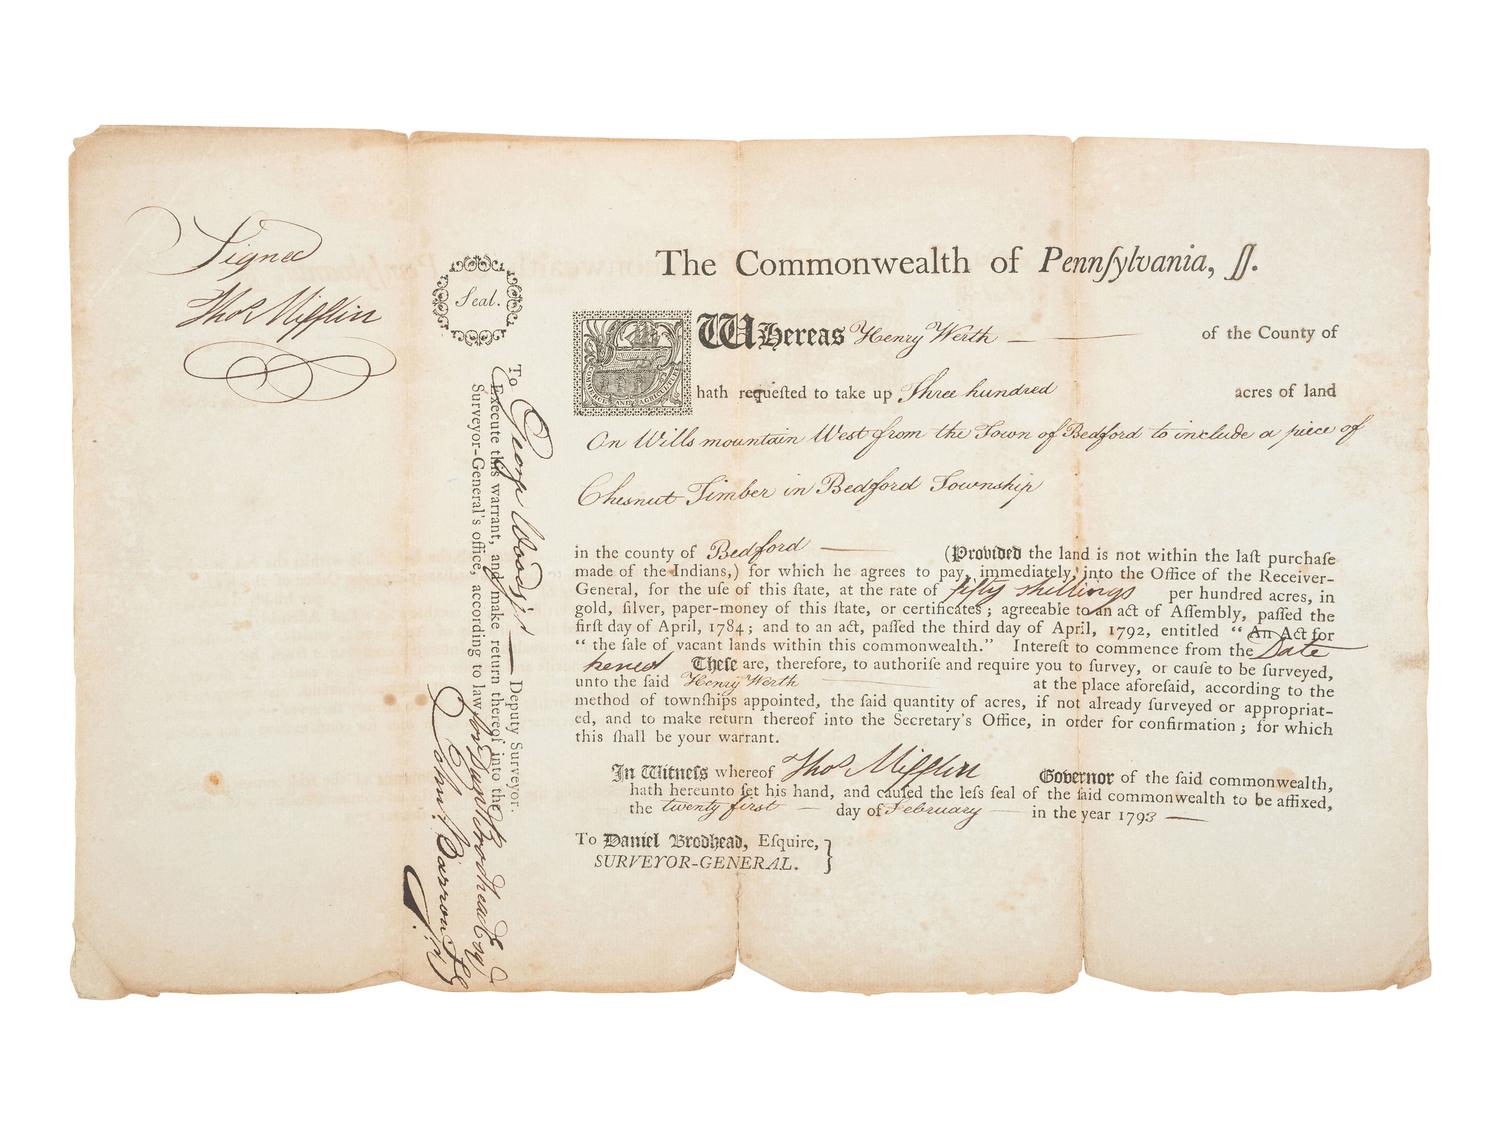 Signed
Thos Mifflin
Seal.
To George Woods jr Deputy Surveyor.
Execute this warrant, and make return thereof into the
Surveyor-General's office, according to law,
Danl Brodhead Esqr
John Barron
The Commonwealth of Pennſylvania, ſſ.
WHereas Henry Werth of the County of
hath requeſted to take up Three hundred acres of land
On Wills mountain West from the Town of Bedford to include a piece of
Chesnut Timber in Bedford Township
in the county of Bedford (Provided the land is not within the laſt purchaſe
made of the Indians,) for which he agrees to pay, immediately, into the Office of the Receiver-
General, for the uſe of this ſtate, at the rate of fifty shillings per hundred acres, in
gold, ſilver, paper-money of this ſtate, or certificates; agreeable to an act of Aſſembly, paſſed the
firſt day of April, 1784; and to an act, paſſed the third day of April, 1792, entitled “ An Act for
“ the ſale of vacant lands within this commonwealth.” Intereſt to commence from the Date
hereof Theſe are, therefore, to authoriſe and require you to ſurvey, or cauſe to be ſurveyed,
unto the ſaid Henry Werth at the place aforeſaid, according to the
method of townſhips appointed, the ſaid quantity of acres, if not already ſurveyed or appropriat-
ed, and to make return thereof into the Secretary's Office, in order for confirmation; for which
this ſhall be your warrant.
In Witneſs whereof Thos Mifflin Governor of the ſaid commonwealth,
hath hereunto ſet his hand, and cauſed the leſs ſeal of the ſaid commonwealth to be affixed,
the twenty first day of February in the year 1793
To Daniel Brodhead, Eſquire, }
SURVEYOR-GENERAL.